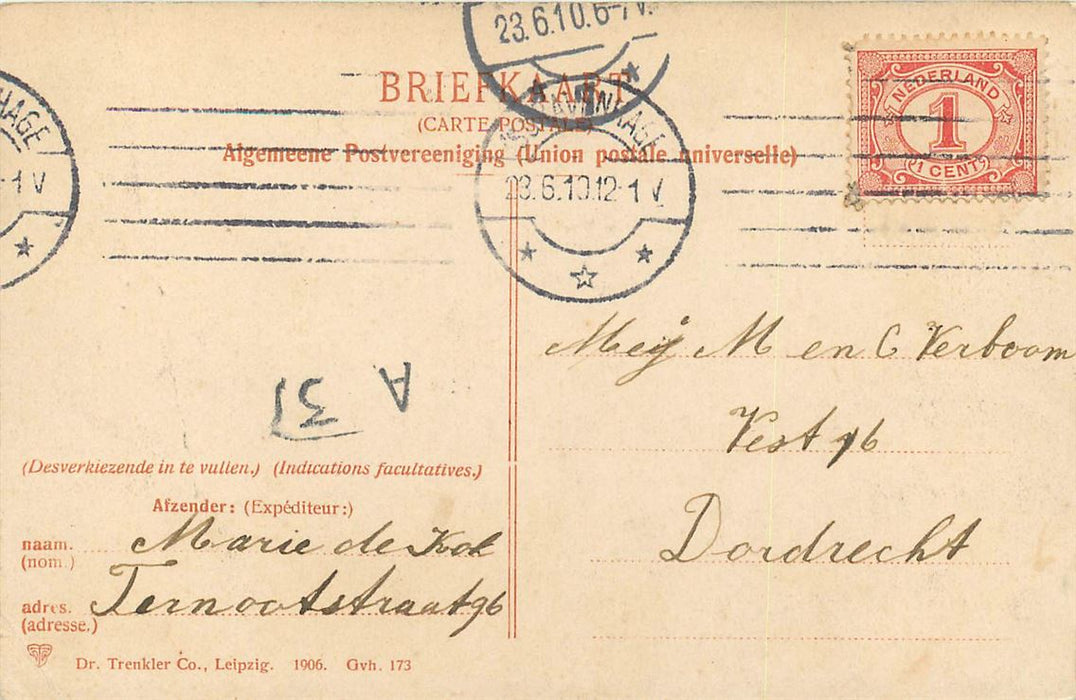 23.6.10.6-7V.
BRIEFKAART
(CARTE POSTALE)
Algemeene Postvereeniging (Union postale universelle)
NEDERLAND
1
1 CENT
HAGE
-1 V
'S GRAVENHAGE
23.6.10.12-1 V.
Mej M en C Verboom
Vest 76
Dordrecht
A 31
(Desverkiezende in te vullen.) (Indications facultatives.)
Afzender: (Expéditeur:)
naam. Marie de Kok
(nom.)
adres. Ternootstraat 96
(adresse.)
Dr. Trenkler Co., Leipzig. 1906. Gvh. 173